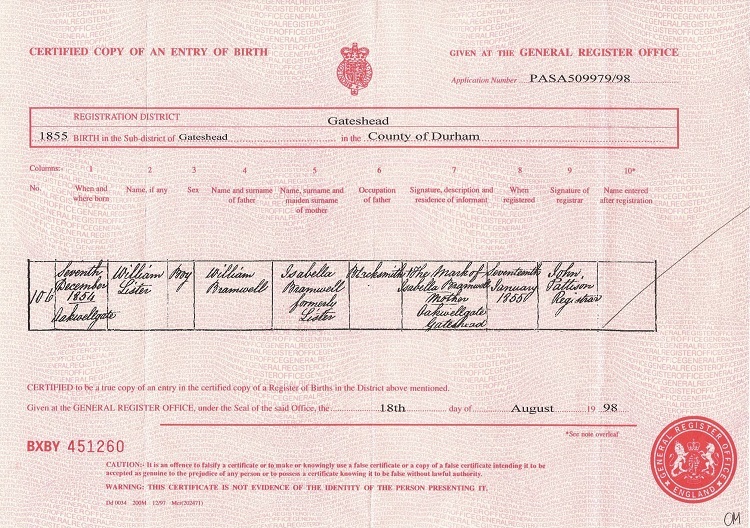 CERTIFIED COPY OF AN ENTRY OF BIRTH
GIVEN AT THE GENERAL REGISTER OFFICE
Application Number PASA509979/98
REGISTRATION DISTRICT Gateshead
1855 BIRTH in the Sub-district of Gateshead in the County of Durham
Columns:- 1 2 3 4 5 6 7 8 9 10*
No. When and where born Name, if any Sex Name and surname of father Name, surname and maiden surname of mother Occupation of father Signature, description and residence of informant When registered Signature of registrar Name entered after registration
106 Seventh December 1854 Oakwellgate William Lister Boy William Bramwell Isabella Bramwell formerly Lister Blacksmith X The Mark of Isabella Bramwell Mother Oakwellgate Gateshead Seventeenth January 1855 John Pattison Registrar
CERTIFIED to be a true copy of an entry in the certified copy of a Register of Births in the District above mentioned.
Given at the GENERAL REGISTER OFFICE, under the Seal of the said Office, the 18th day of August 19 98
*See note overleaf
BXBY 451260
CAUTION:- It is an offence to falsify a certificate or to make or knowingly use a false certificate or a copy of a false certificate intending it to be
accepted as genuine to the prejudice of any person or to possess a certificate knowing it to be false without lawful authority.
WARNING: THIS CERTIFICATE IS NOT EVIDENCE OF THE IDENTITY OF THE PERSON PRESENTING IT.
Dd 0034 200M 12/97 Mcr(202471)
GENERAL REGISTER OFFICE
ENGLAND
CM